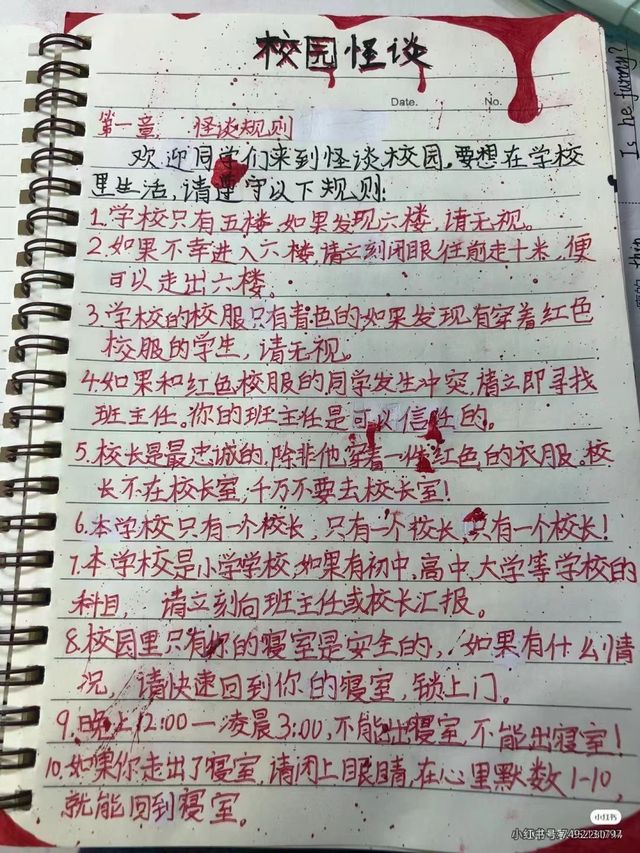 校园怪谈
Date.
No.
第一章. 怪谈规则
欢迎同学们来到怪谈校园。要想在学校
里生活,请遵守以下规则:
1.学校只有五楼,如果发现六楼,请无视。
2.如果不幸进入六楼,请立刻闭眼往前走十米,便
可以走出六楼。
3.学校的校服只有青色的,如果发现有穿着红色
校服的学生,请无视。
4.如果和红色校服的同学发生冲突,请立即寻找
班主任。你的班主任是可以信任的。
5.校长是最忠诚的,除非他穿着一件红色的衣服。校
长不在校长室,千万不要去校长室!
6.本学校只有一个校长,只有一个校长,只有一个校长!
7.本学校是小学学校,如果有初中、高中、大学等学校的
科目, 请立刻向班主任或校长汇报。
8.校园里只有你的寝室是安全的,如果有什么情
况, 请快速回到你的寝室,锁上门。
9.晚上12:00—凌晨3:00,不能出寝室,不能出寝室!
10.如果你走出了寝室,请闭上眼睛,在心里默数1-10,
就能回到寝室。
Is he funny?
小红书
小红书号: